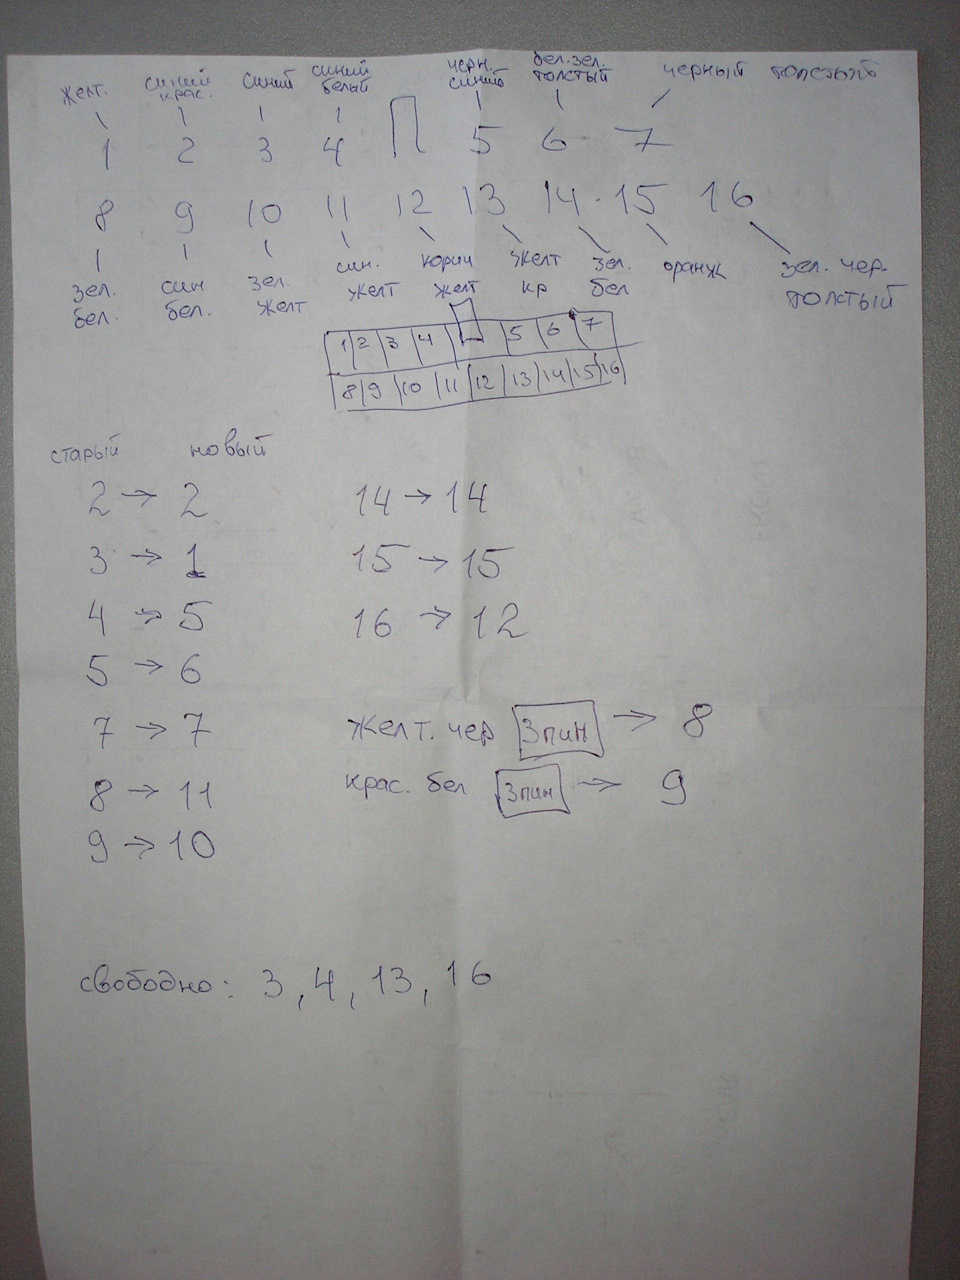 желт. синий крас. синий синий белый черн. синий бел.зел. толстый черный толстый
1 2 3 4 5 6 7
8 9 10 11 12 13 14 15 16
зел. бел. син бел. зел. желт син. желт корич желт желт кр зел. бел оранж зел. чер. толстый
1 2 3 4 5 6 7
8 9 10 11 12 13 14 15 16
старый новый
2 → 2 14 → 14
3 → 1 15 → 15
4 → 5 16 → 12
5 → 6
7 → 7 желт. чер 3пин → 8
8 → 11 крас. бел 3пин → 9
9 → 10
свободно: 3, 4, 13, 16